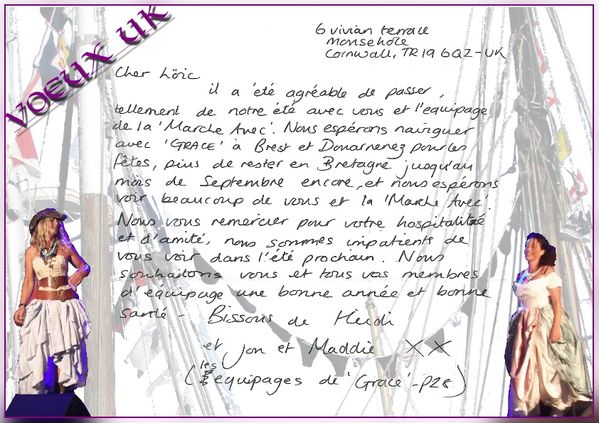 VOEUX UK
6 vivian terrace
Mousehole
Cornwall, TR19 6QZ-UK
Cher Löic
il a été agréable de passer,
tellement de notre été avec vous et l'equipage
de la 'Marche Avec'. Nous espérons naviguer
avec 'GRACE' à Brest et Douarnenez pour les
fêtes, pius de rester en Bretagne jusqu'au
mois de Septembre encore, et nous espérons
voir beaucoup de vous et la 'Marche Avec'.
Nous vous remercier pour votre hospitalité
et d'amité, nous sommes impatients de
vous voir dans l'été prochain. Nous
souhaitons vous et tous vos membres
d'equipage une bonne année et bonne
santé - Bissous de Heidi
et Jon et Maddie XX
(les equipages de 'Grace' - P28)